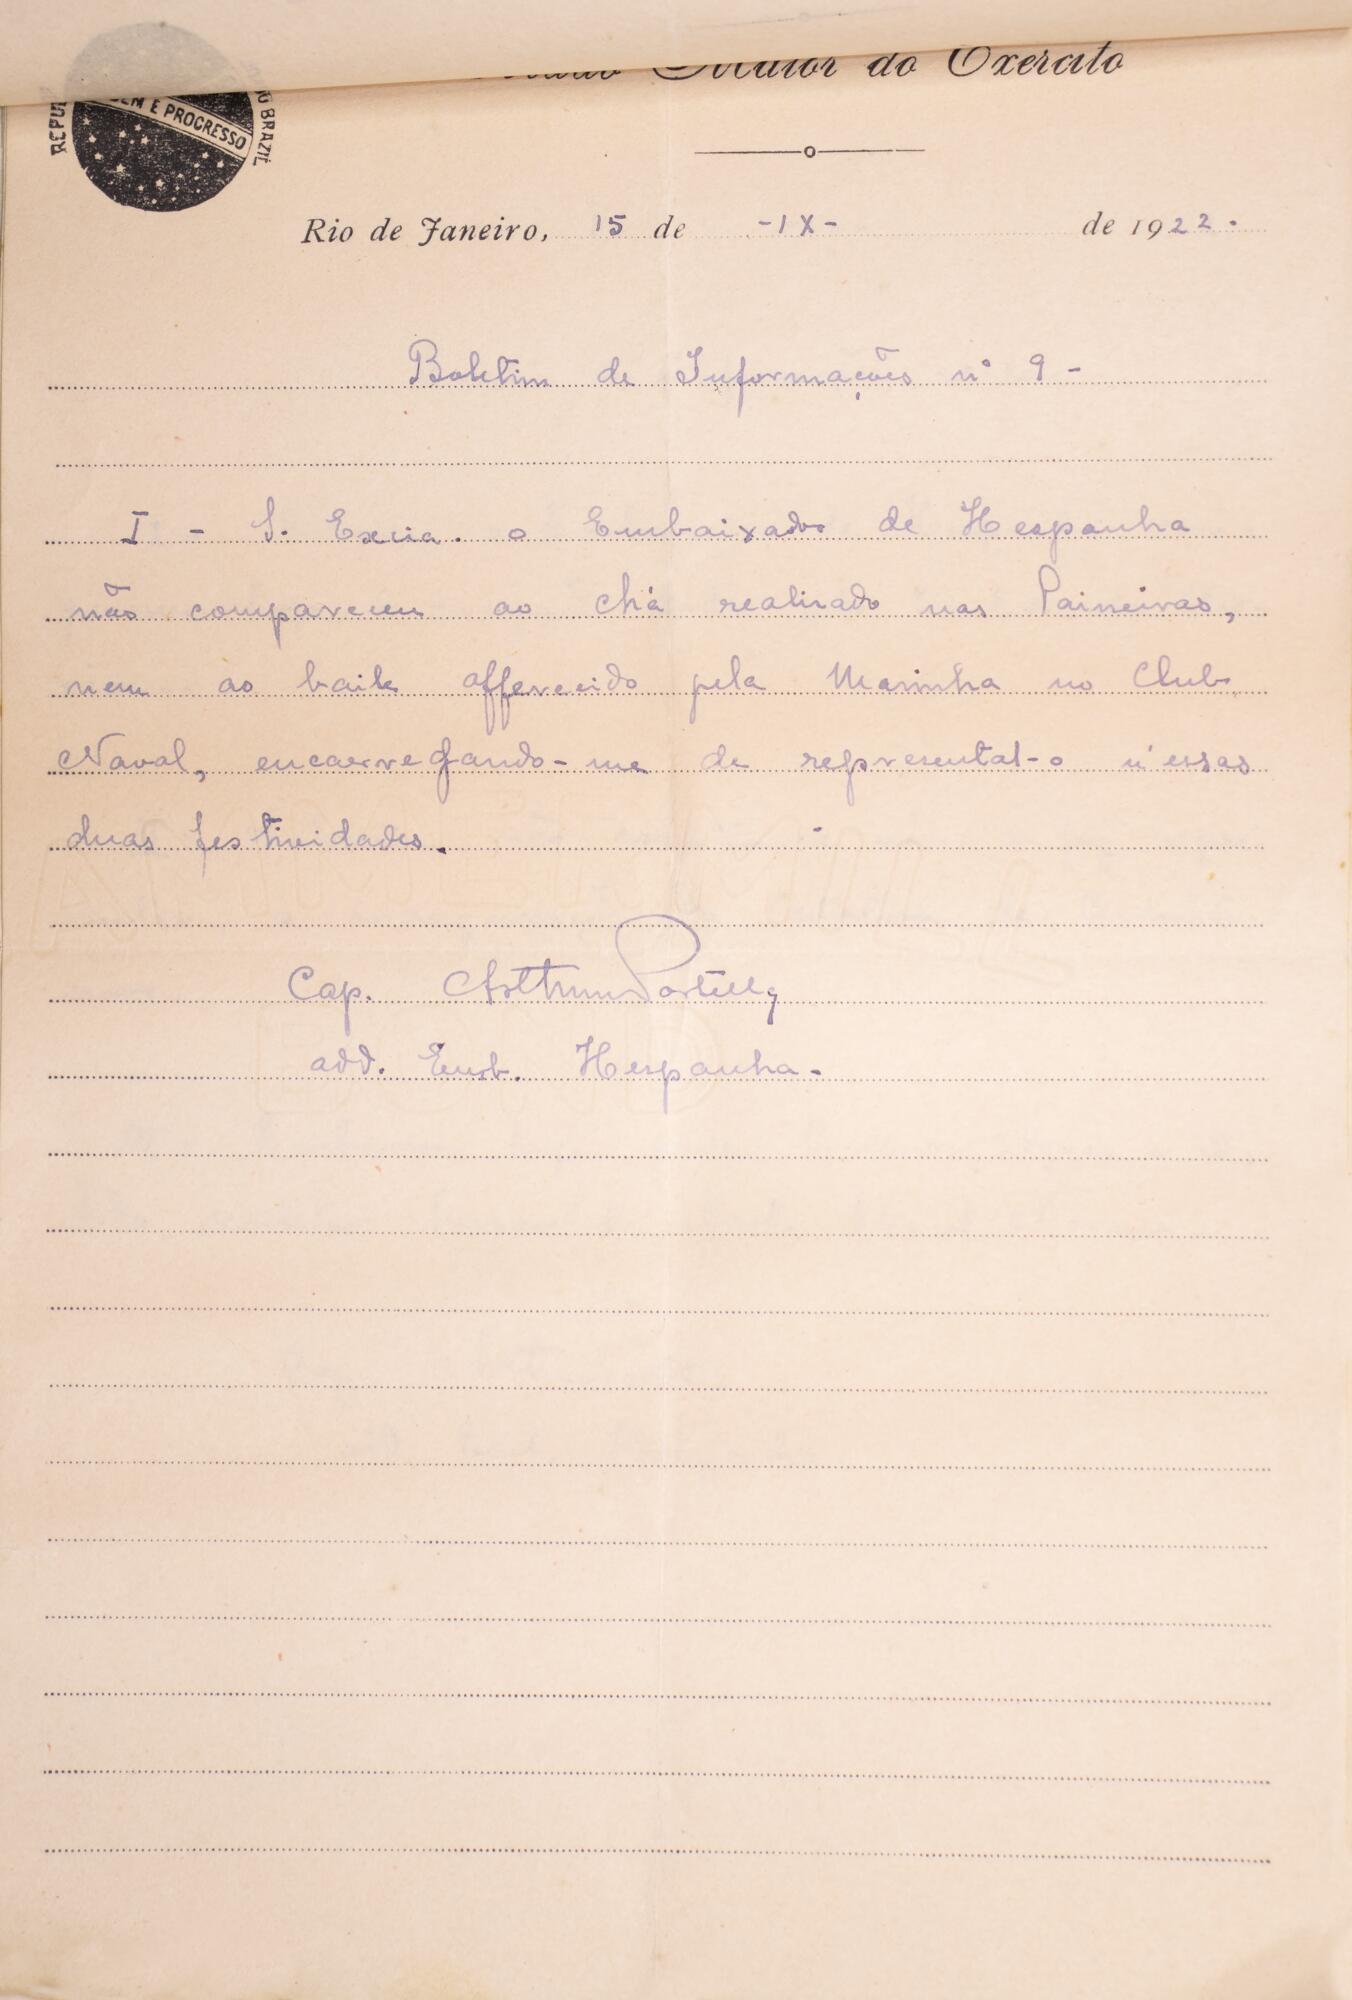 Maior do Exercito
REPU
DEM E PROGRESSO
BRAZIL
Rio de Janeiro, 15 de -IX- de 1922.
Boletim de Informações nº 9 -
I - S. Excia. o Embaixador de Hespanha
não compareceu ao chá realizado nas Paineiras,
nem ao baile offerecido pela Marinha no Club
Naval, encarregando-me de represental-o n'essas
duas festividades.
Cap. Arthur Portella
add. Emb. Hespanha.